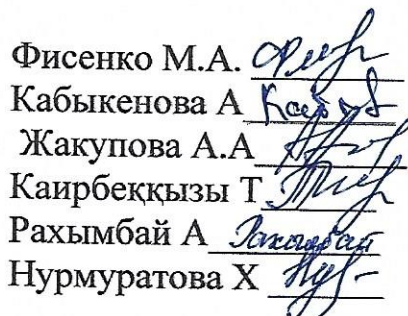 Фисенко М.А.
Кабыкенова А
Жакупова А.А
Каирбеққызы Т
Рахымбай А Рахымбай
Нурмуратова Х